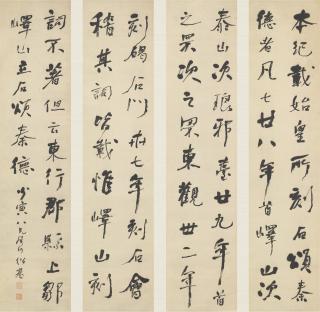 本纪载始皇所刻石颂秦
德者凡七廿八年首峄山次
泰山次琅邪台廿九年首
之罘次之罘東觀卅二年
刻碣石门卅七年刻石會
稽其詞皆載惟嶧山刻
詞不著但云東行郡縣上鄒
嶧山立石頌秦德 少寅八兄